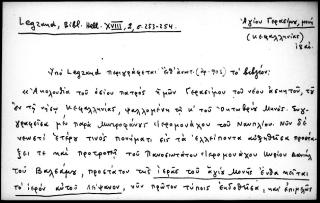 Legrand, Bibl. Hell. XVIII, 2, σ. 253-254.
Ἁγίου Γερασίμου, μονὴ
(Κεφαλληνίας)
18 αἰ.
Ὑπὸ Legrand περιγράφεται τὸ βιβλίον:
«Ἀκολουθία τοῦ ὁσίου πατρὸς ἡμῶν Γερασίμου τοῦ νέου ἀσκητοῦ, τοῦ
ἐν τῇ νήσῳ Κεφαλληνίας, ψαλλομένη τῇ κ΄ τοῦ Ὀκτωβρίου Μηνός. Συγ
γραφεῖσα μὲν παρὰ Μητροφάνους Ἱερομονάχου τοῦ Ναυπλίου. Νῦν δὲ
νεωστὶ ἑτέρῳ τινὸς πονήματι εἰς τὰ ἐλλείποντα αὐξηθεῖσα
τε καὶ προτροπῇ τοῦ Πανοσιωτάτου Ἱερομονάχου Κυρίου
τοῦ Βαλσάμη, προεστῶτος τῆς ἱερᾶς τοῦ ἁγίου Μονῆς ἔνθα κεῖται
τὸ ἱερὸν αὐτοῦ λείψανον, νῦν πρῶτον τύποις ἐκδοθεῖσα, καὶ ἐπιμελῶς